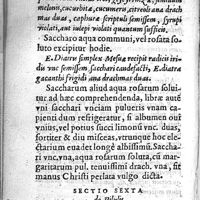 melonis, cucurbitæ, cucumeris, utriusque ana drach
mas duas, caphuræ scriptuli semissem, syrupi
violati, aut iulepi violati quantum sufficit.
Saccharo aqua communi, vel rosata so-
luto excipitur hodie.
E. Diatra simplex Mesuæ recipit radicis iri-
dis unc̃ semissem, sacchari candefacti, E diatra
gacanthi frigidi ana drachmas duas.
Saccharum aliud aqua rosarum solui-
tur ad hæc comprehendenda, libræ autē
vni sacchari vnciam pulueris vnam ca-
piendi dum refrigeratur, si albumen oui
vnius, vel potius succi limonū vnc. duas,
fortiter & diu misceas, vtrunque hoc ele-
ctarium euadet longè albissimū. Saccha-
ri vnc. vna, aqua rosarum soluta, cū mar-
garitarum pul. tenuissimi drach. vna, sit
manus Christi perlata vulgo dicta.
SECTIO SEXTA
de Pilulis